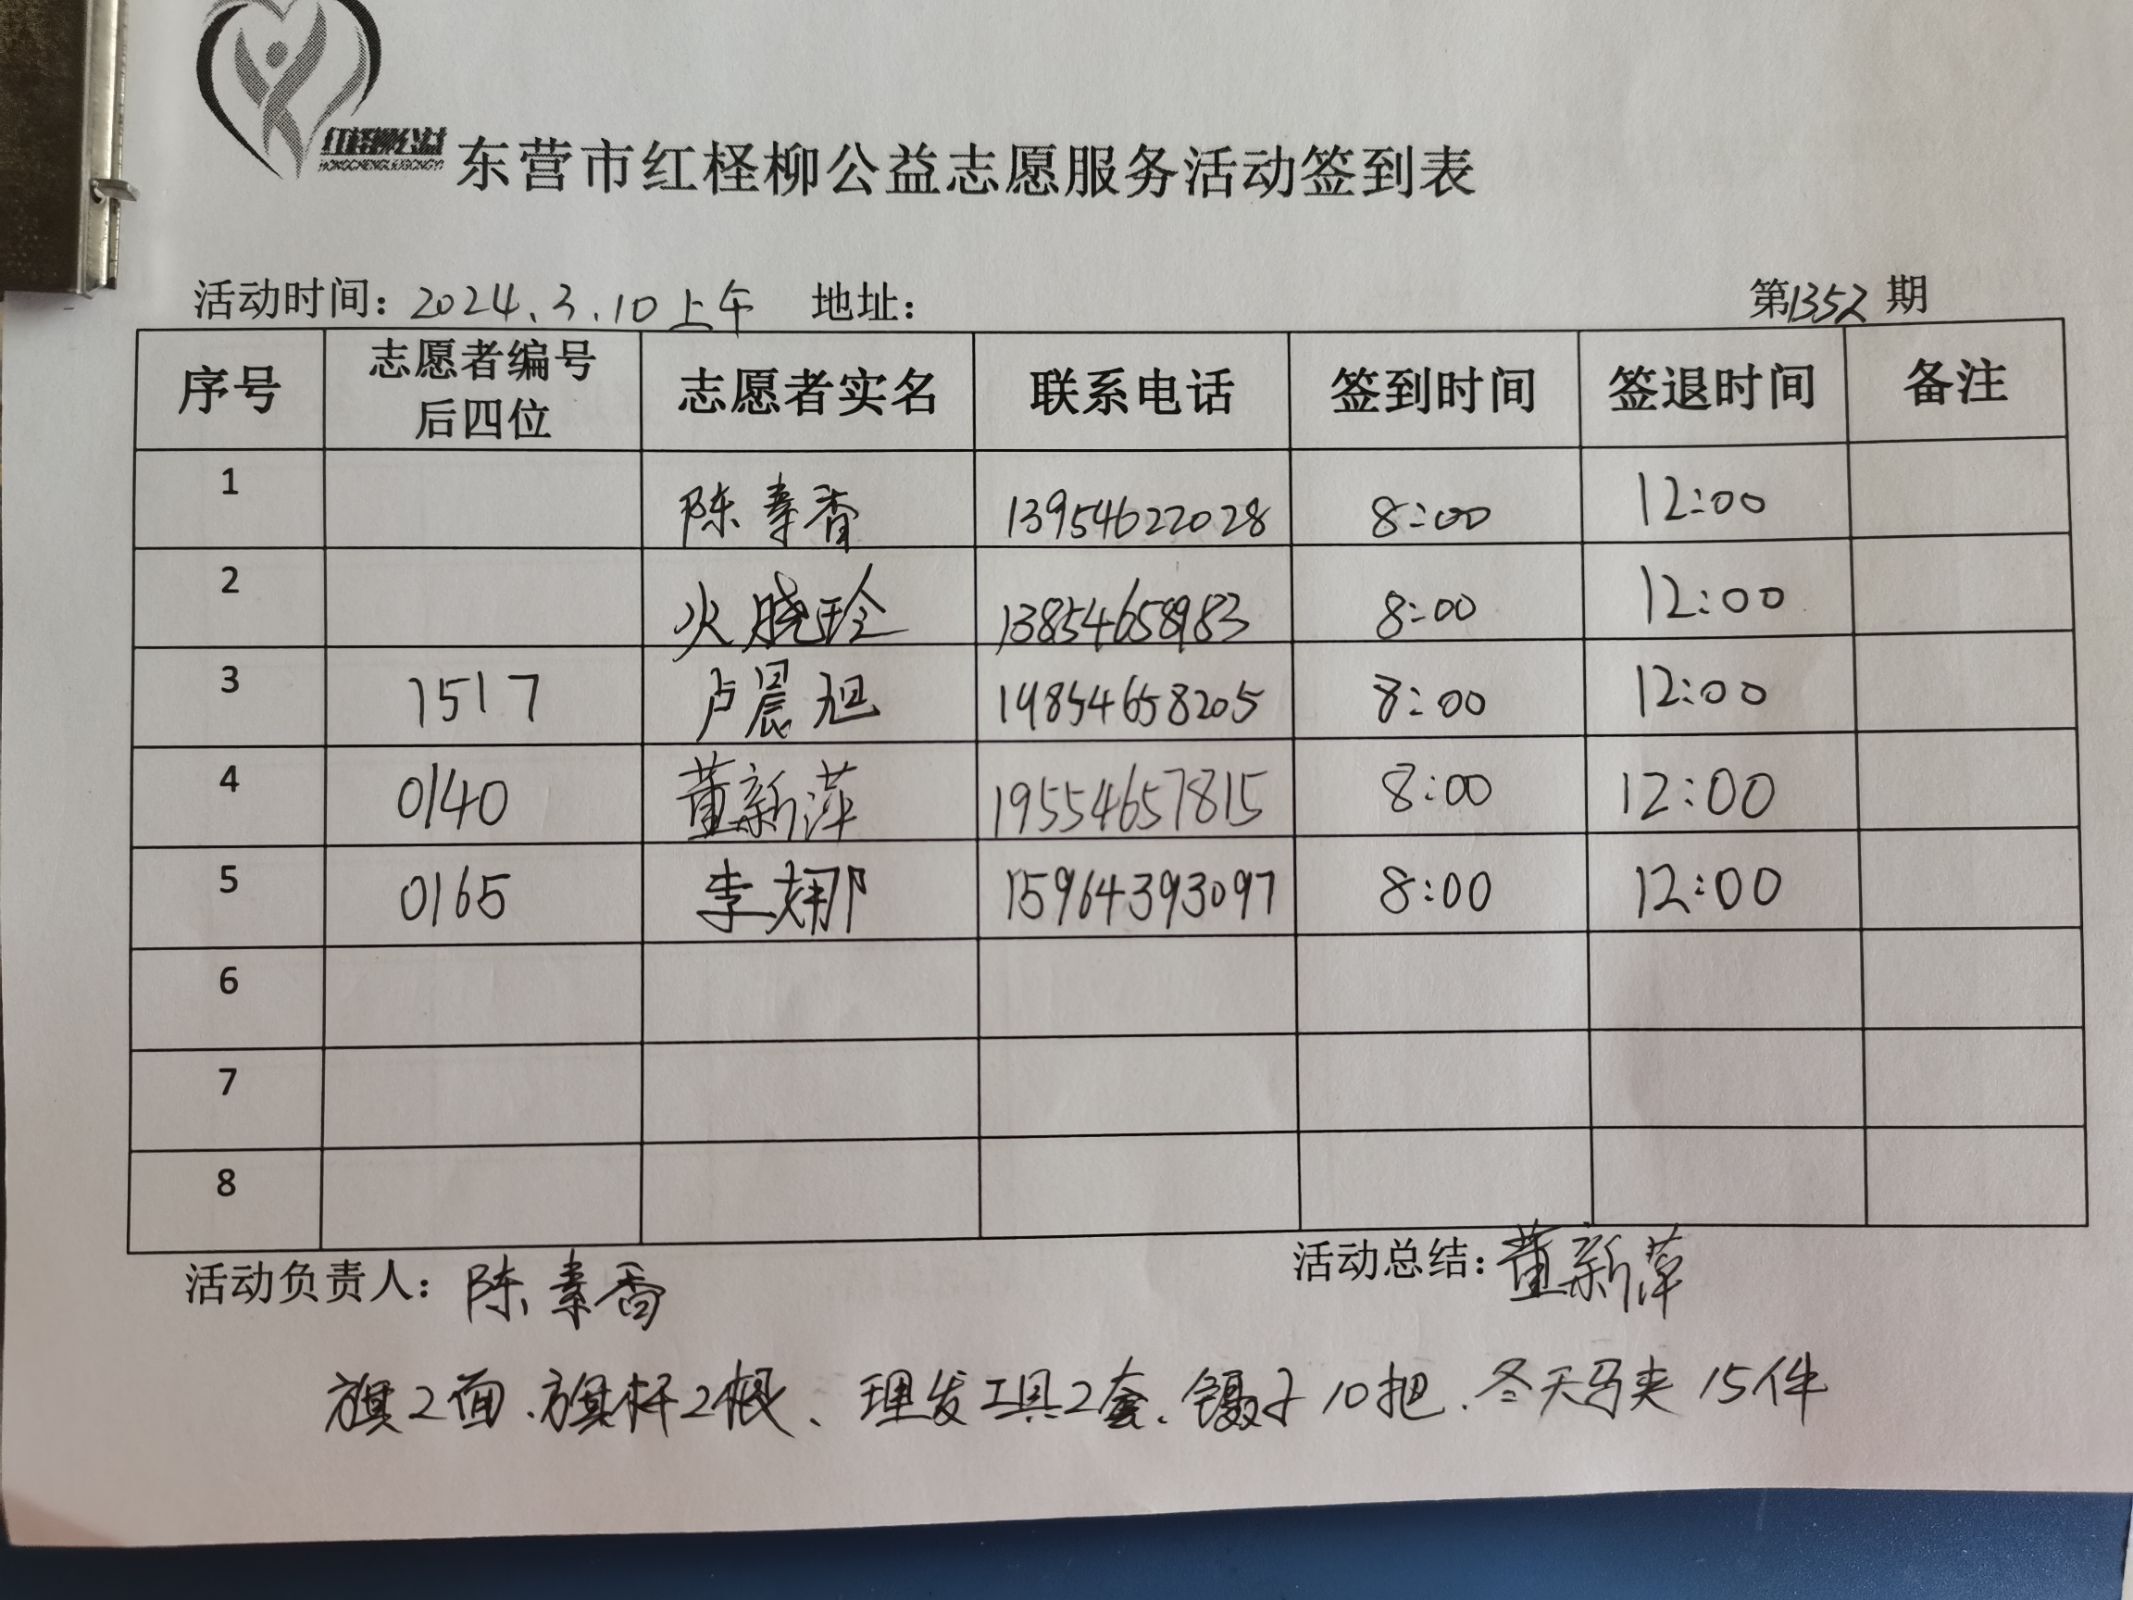 红柽柳公益
HONGCHENGLIUGONGYI
东营市红柽柳公益志愿服务活动签到表
活动时间：2024.3.10上午 地址： 第1352期
序号 志愿者编号后四位 志愿者实名 联系电话 签到时间 签退时间 备注
1 陈素香 13954622028 8:00 12:00
2 火晓玲 13854658983 8:00 12:00
3 1517 卢晨旭 19854658205 8:00 12:00
4 0140 董新萍 19554657815 8:00 12:00
5 0165 李娜 15964393097 8:00 12:00
6
7
8
活动负责人：陈素香 活动总结：董新萍
旗2面、旗杆2根、理发工具2套、镊子10把、冬天马夹15件